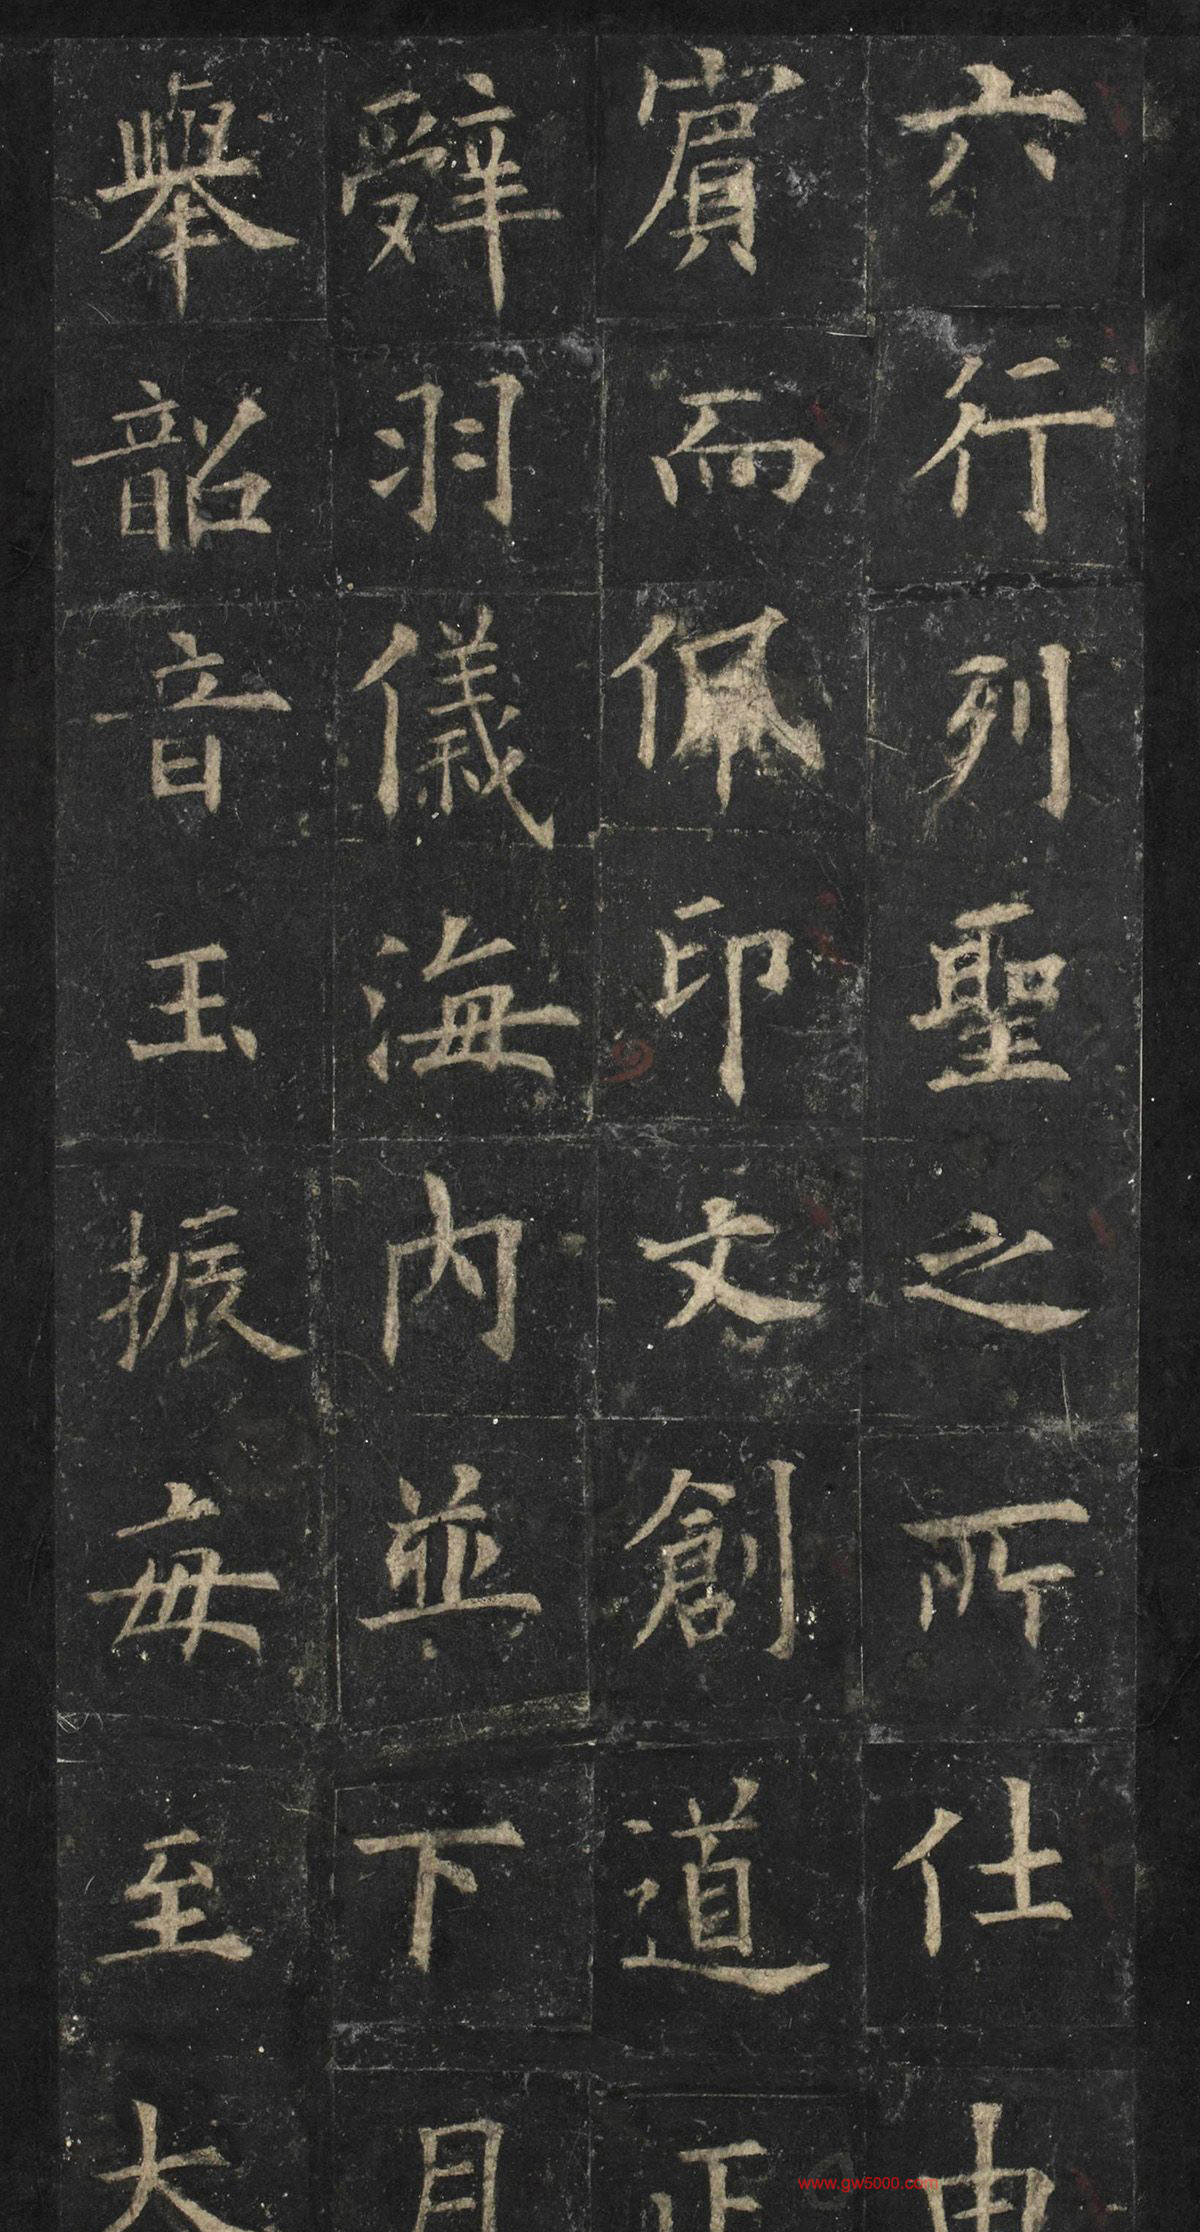 六行列聖之所仕由
賓而佩印文創道正
辤羽儀海内並下月
舉韶音玉振每至大
www.gw5000.com